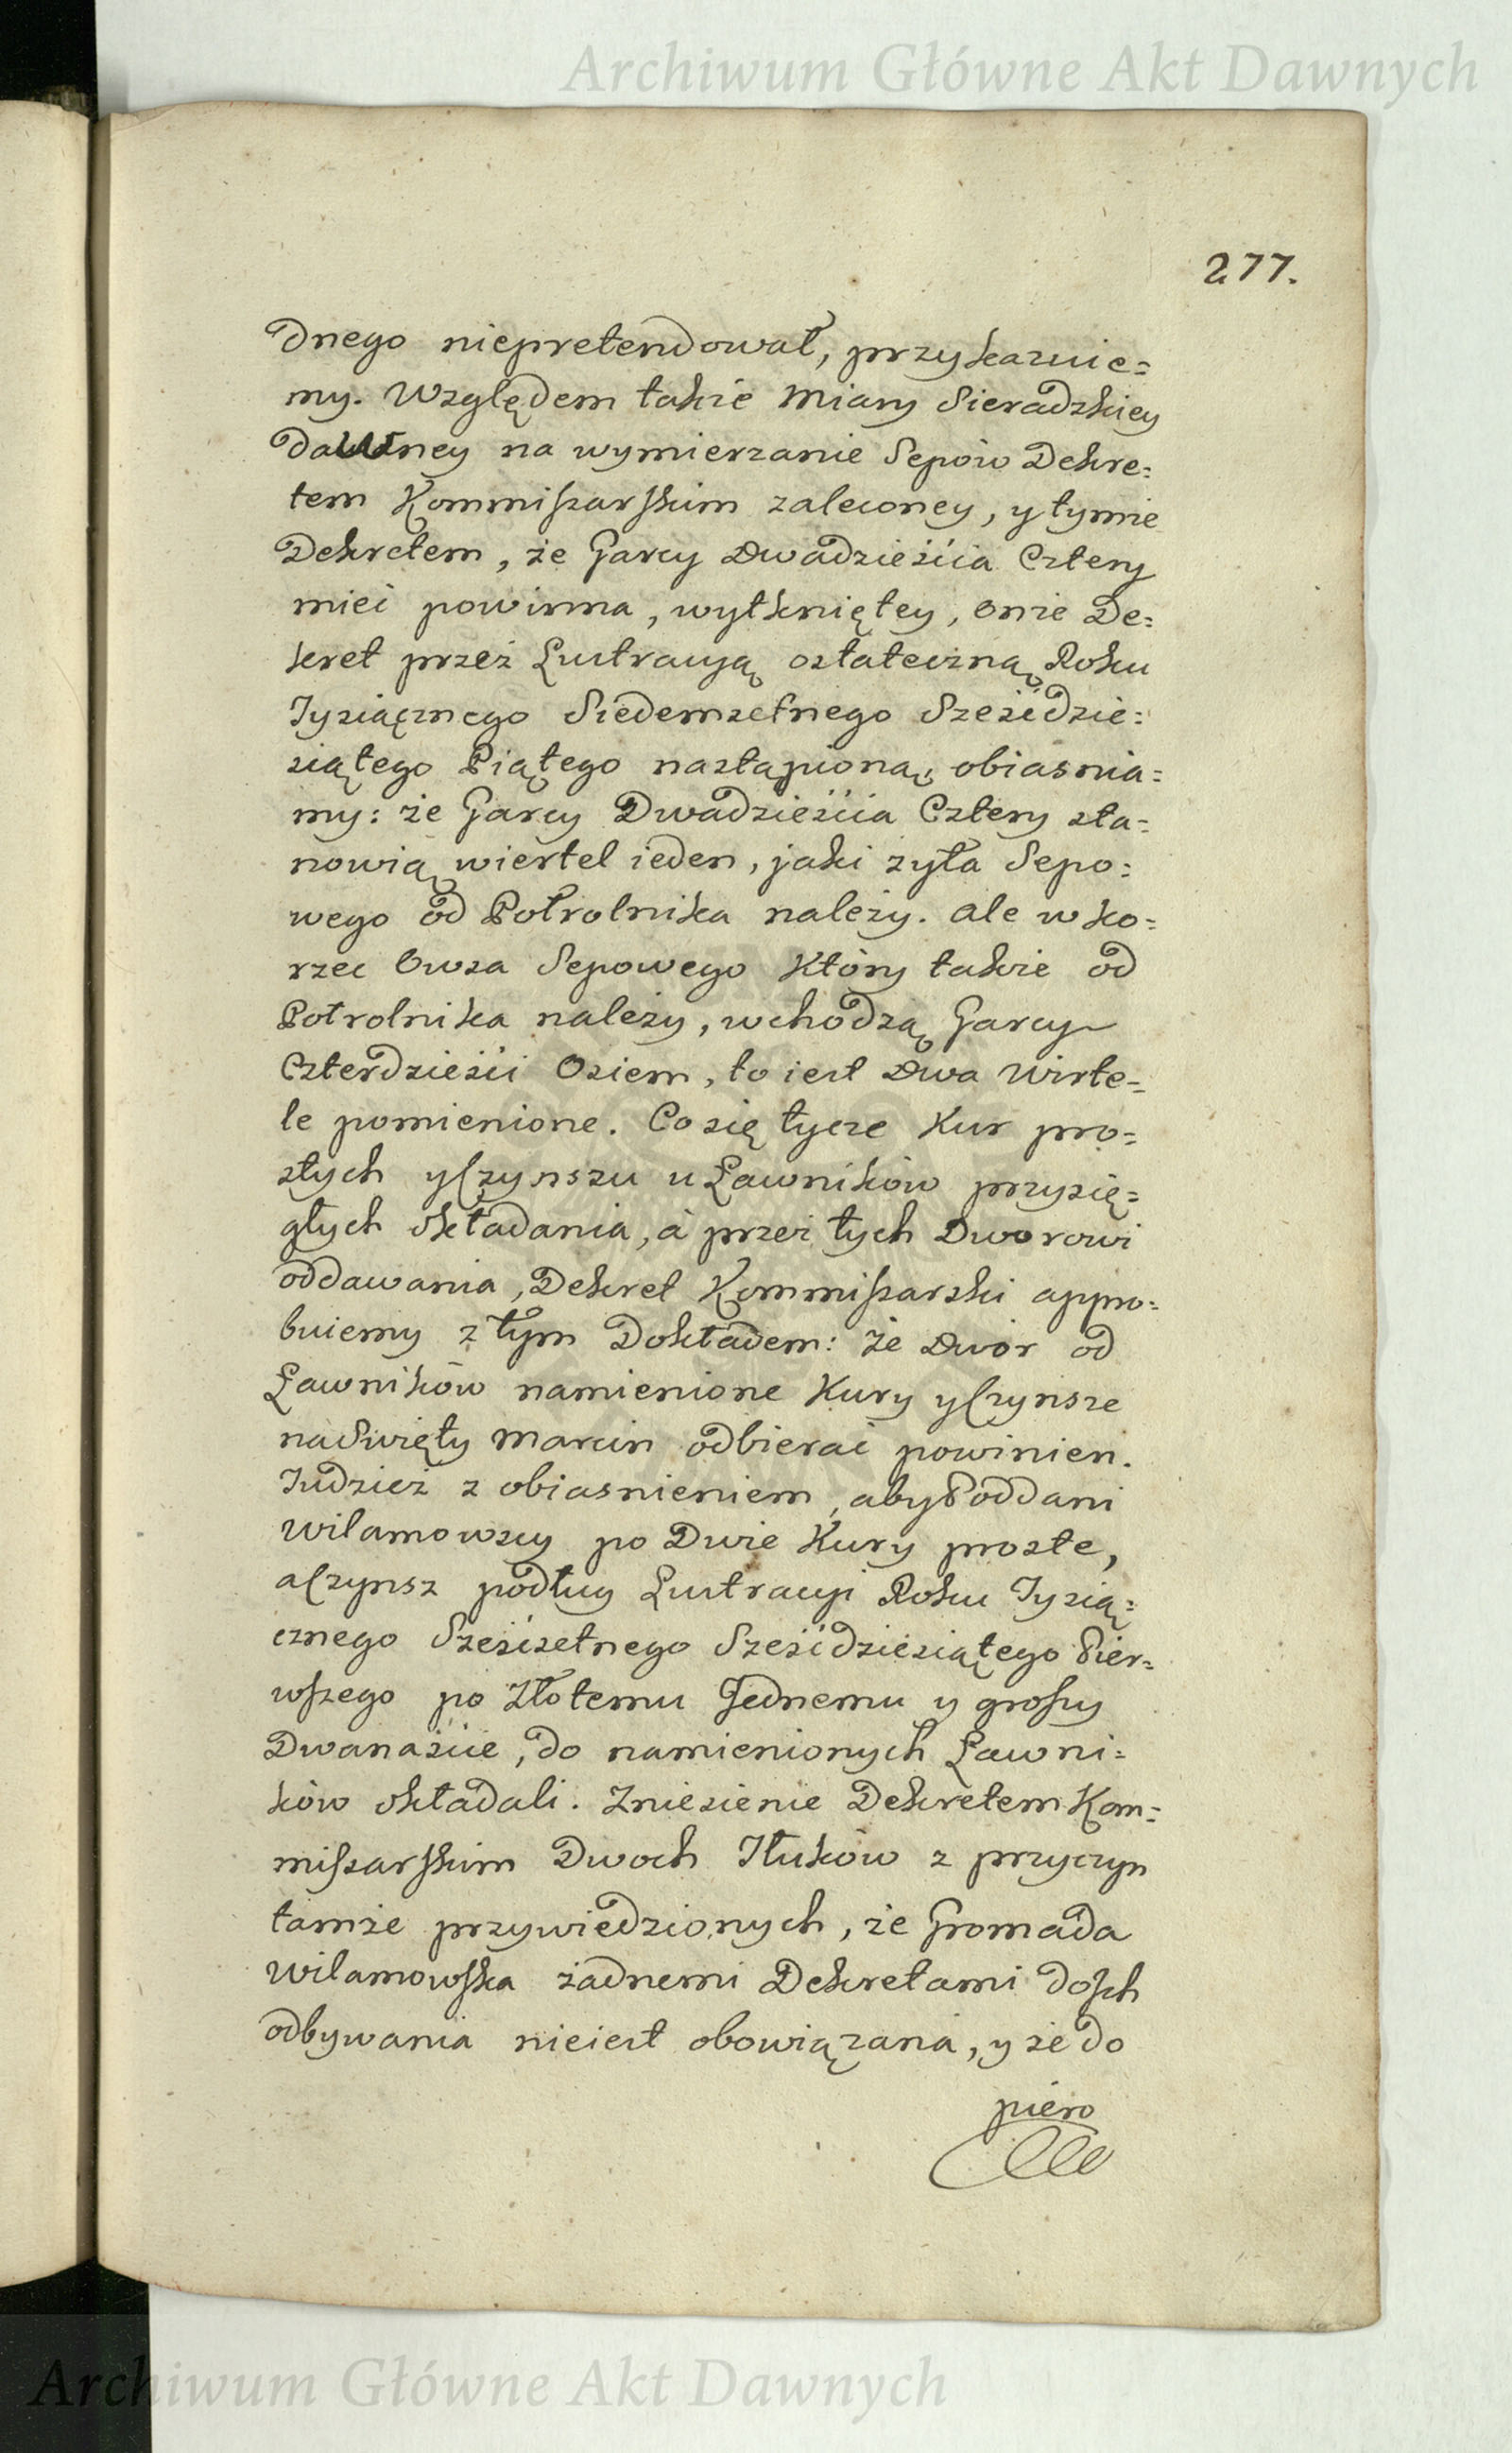 Archiwum Główne Akt Dawnych
277.
dnego niepretendował, przykazuie=
my. Względem także Miary Sieradzkiey
Dawney na wymierzanie Sepów Dekre=
tem Kommiszarskim zaleconey, y tymże
Dekretem, że Garcy Dwadzieścia Cztery
mieć powinna, wytkniętey, onże De=
kret przez Lustracyą ostateczną Roku
Tysiącznego Siedemsetnego Sześćdzie=
siątego Piątego nastąpioną, obiasnia=
my: że Garcy Dwadzieścia Cztery sta=
nowią wiertel ieden, jaki żyta Sepo=
wego od Półrolnika należy. ale w ko=
rzec Owsa Sepowego Który także od
Półrolnika należy, wchodzą Garcy
Czterdzieści Osiem, to iest Dwa Wirte=
le pomienione. Co się tycze Kur pro=
stych y Czynszu u Ławników przysię=
głych składania, à przez tych Dworowi
oddawania, Dekret Kommiszarski appro=
buiemy z tym Dokładem: że Dwór od
Ławników namienione Kury y Czynsze
na Święty Marcin odbierać powinien.
Tudzież z obiasnieniem, aby Poddani
Wilamowscy po Dwie Kury proste,
a Czynsz podług Lustracyi Roku Tysią=
cznego Sześćsetnego Sześćdziesiątego Pier=
wszego po Złotemu Jednemu y groszy
Dwanaście, do namienionych Ławni=
ków składali. Zniesienie Dekretem Kom=
miszarskim Dwoch Tłuków z przyczyn
tamże przywiedzionych, że Gromada
Wilamowska żadnemi Dekretami do sch
odbywania nieiest obowiązana, y że do
piero
Archiwum Główne Akt Dawnych